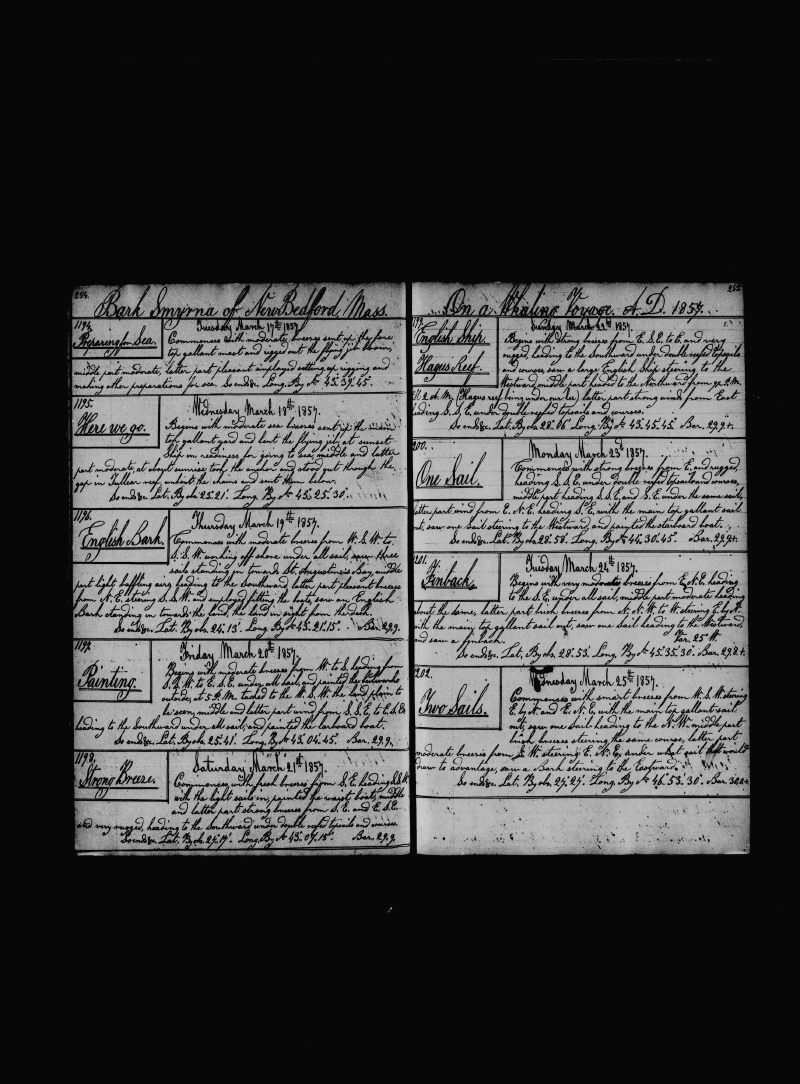 254.
Bark Smyrna of New Bedford, Mass.
1194.
Preparing for Sea.
Tuesday March 17th 1857.
Commences with moderate breezes sent up the fore
top gallant mast and rigged out the flying jib boom,
middle part moderate, latter part pleasant employed setting up rigging and
making other preparations for sea. So ends &c. Long. By Ac 43.39.45.
1195.
Here we go.
Wednesday March 18th 1857.
Begins with moderate sea breezes sent up the
top gallant yard and bent the flying jib, at sunset
Ship in readiness for going to sea, middle and latter
part moderate, at about sunrise took the anchor and stood out through the
gap in Tullear reef, unbent the chains and sent them below.
So ends &c. Lat. By ob. 25.21. Long By Ac 43.25.30.
1196.
English Bark.
Thursday March 19th 1857.
Commences with moderate breezes from W.S.W. to
S.S.W. working off shore under all sail, saw three
sails standing in towards St. Augustine's Bay, middle
part light baffling airs heading to the Southward, latter part pleasant breezes
from N.E. steering S.S.W. and employed fitting the boats, saw an English
Bark standing in towards the land, the land in sight from the deck.
So ends &c. Lat. By ob. 24.13. Long By Ac 43.21.15. Bar. 29.9.
1197.
Painting.
Friday March 20th 1857.
Begins with moderate breezes from W. to S. heading from
S.S.W. to E.S.E. under all sail, and painted the bulwarks
outside, at 5 P.M. tacked to the W.S.W. the land plain to
be seen, middle and latter part wind from S.S.E. to E.S.E.
heading to the Southward under all sail, and painted the larboard boat.
So ends &c. Lat. By ob. 25.41. Long. By Ac 43.04.45. Bar. 29.9.
1198.
Strong Breeze.
Saturday March 21st 1857.
Commences with fresh breezes from S.E. heading S.S.W.
with the light sails in, painted the waist boat, middle
and latter part strong breezes from S.E. and E.S.E.
and very rugged, heading to the Southward under double reefed topsails and courses.
So ends &c. Lat. By ob. 27.17. Long. By Ac 43.09.15. Bar. 29.9.
255.
On a Whaling Voyage A.D. 1857.
1199.
English Ship.
Hagus Reef.
Sunday March 22nd 1857.
Begins with strong breezes from E.S.E. to E. and very
rugged, heading to the Southward under double reefed topsails
and courses, saw a large English Ship steering to the
Westward, middle part headed to the Northward from 7 P.M.
till 2 A.M. (Hagus reef being under our lee) latter part strong winds from East
heading S.S.E. under double reefed topsails and courses.
So ends &c. Lat. By ob. 28.06. Long. By Ac 43.45.45. Bar. 29.9+.
1200.
One Sail.
Monday March 23d 1857.
Commences with strong breezes from E. and rugged,
heading S.S.E. under double reefed topsails and courses,
middle part heading S.S.E. and S.E. under the same sail,
latter part wind from E.N.E. heading S.E. with the main top gallant sail
out, saw one Sail steering to the Westward, and painted the starboard boat.
So ends &c. Lat. By ob. 28.58. Long. By Ac 44.30.45. Bar. 29.9+.
1201.
Finback.
Tuesday March 24th 1857.
Begins with very moderate breezes from E.N.E. heading
to the S.E. under all sail, middle part moderate heading
about the same, latter part brisk breezes from N.N.W. to W. steering E. by N.
with the main top gallant sail out, saw one Sail heading to the Westward,
and saw a finback. Var. 25° W.
So ends &c. Lat. By ob. 28.53. Long. By Ac 45.35.30. Bar. 29.8+.
1202.
Two Sails.
Wednesday March 25th 1857.
Commences with smart breezes from W.S.W. steering
E. by N. and E.N.E. with the main top gallant sail
out, saw one Sail heading to the N.W. middle part
brisk breezes steering the same course, latter part
moderate breezes from S.W. steering E.N.E. under what sail that would
draw to advantage, saw a Bark steering to the Eastward.
So ends &c. Lat. By ob. 27.27. Long. By Ac 46.53.30. Bar. 30.0+.